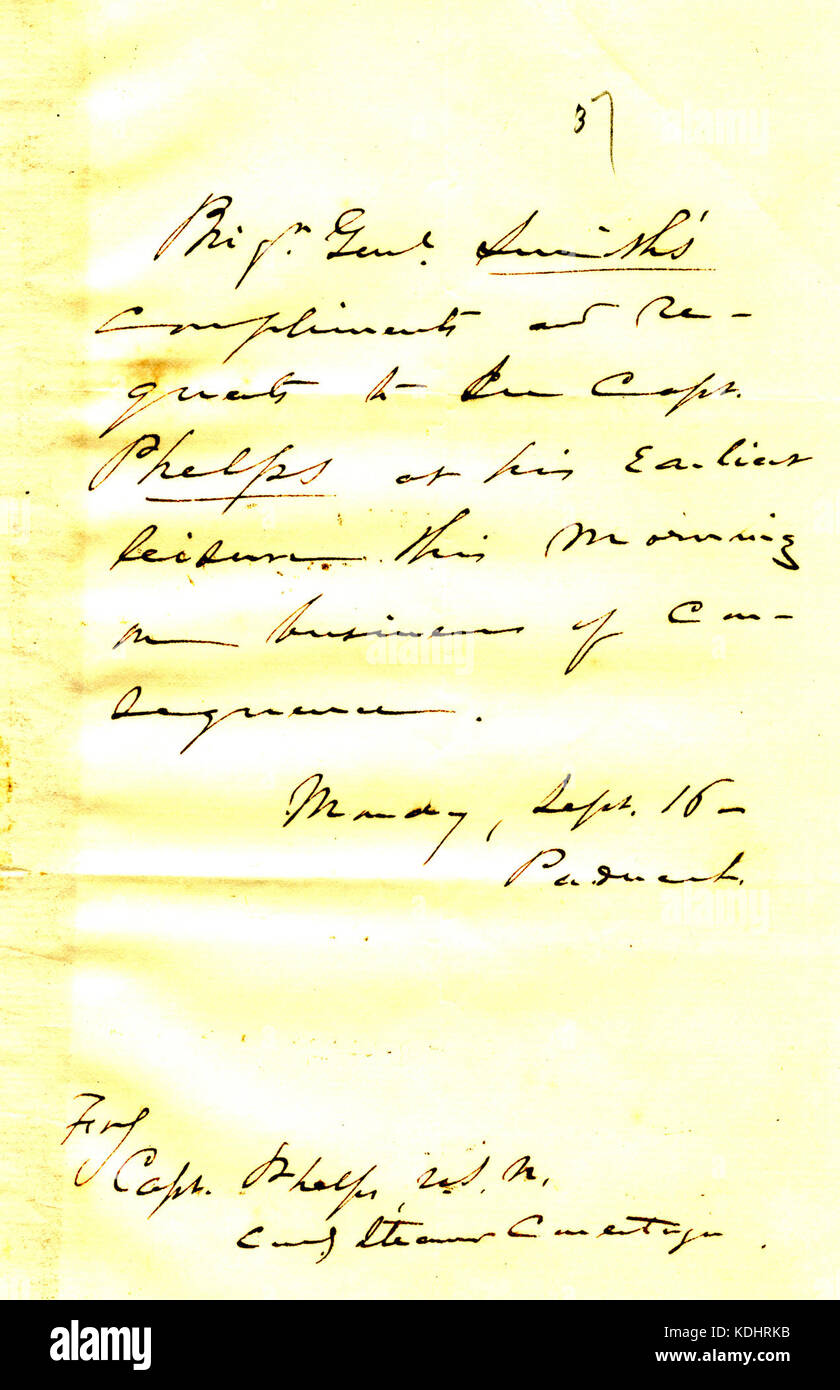 37
Brigr. Genl. Smith's
compliments and re-
quests to see Capt.
Phelps at his Earliest
leisure this morning
on business of con-
sequence.
Monday, Sept. 16 -
Paducah.
For
Capt. Phelps, U.S.N.
Comd Steamer Conestoga.
alamy
Image ID: KDHRKB
www.alamy.com